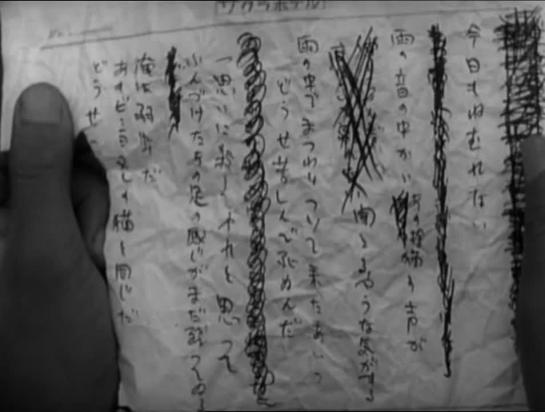 サクラホテル
今日もねむれない
雨の音の中から あの捨猫の声が
聞えるやうな気がする
雨の中でまつわりついて来たあいつ
どうせ苦しんで死ぬんだ
一思いに殺してやれと思って
ふんづけた あの足の感じがまだ残っている
俺は弱虫だ
あのビショ濡れの猫と同じだ
どうせ